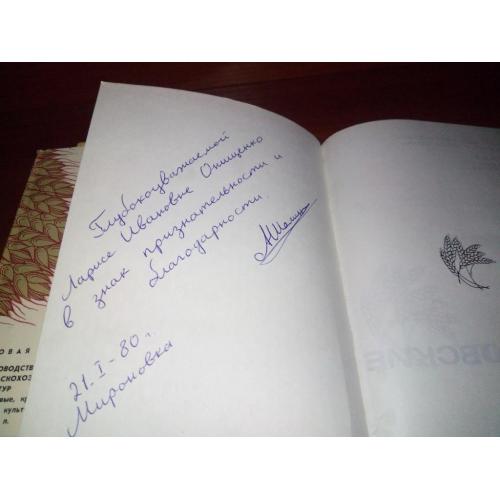 Глубокоуважаемой
Ларисе Ивановне Онищенко
в знак признательности и
благодарности.
21.I-80 г.
Мироновка
ОВАЯ
ОВОДСТВ
СКОХОЗ
ТУР
вые, кр
культ
л.
ОВСКИЕ